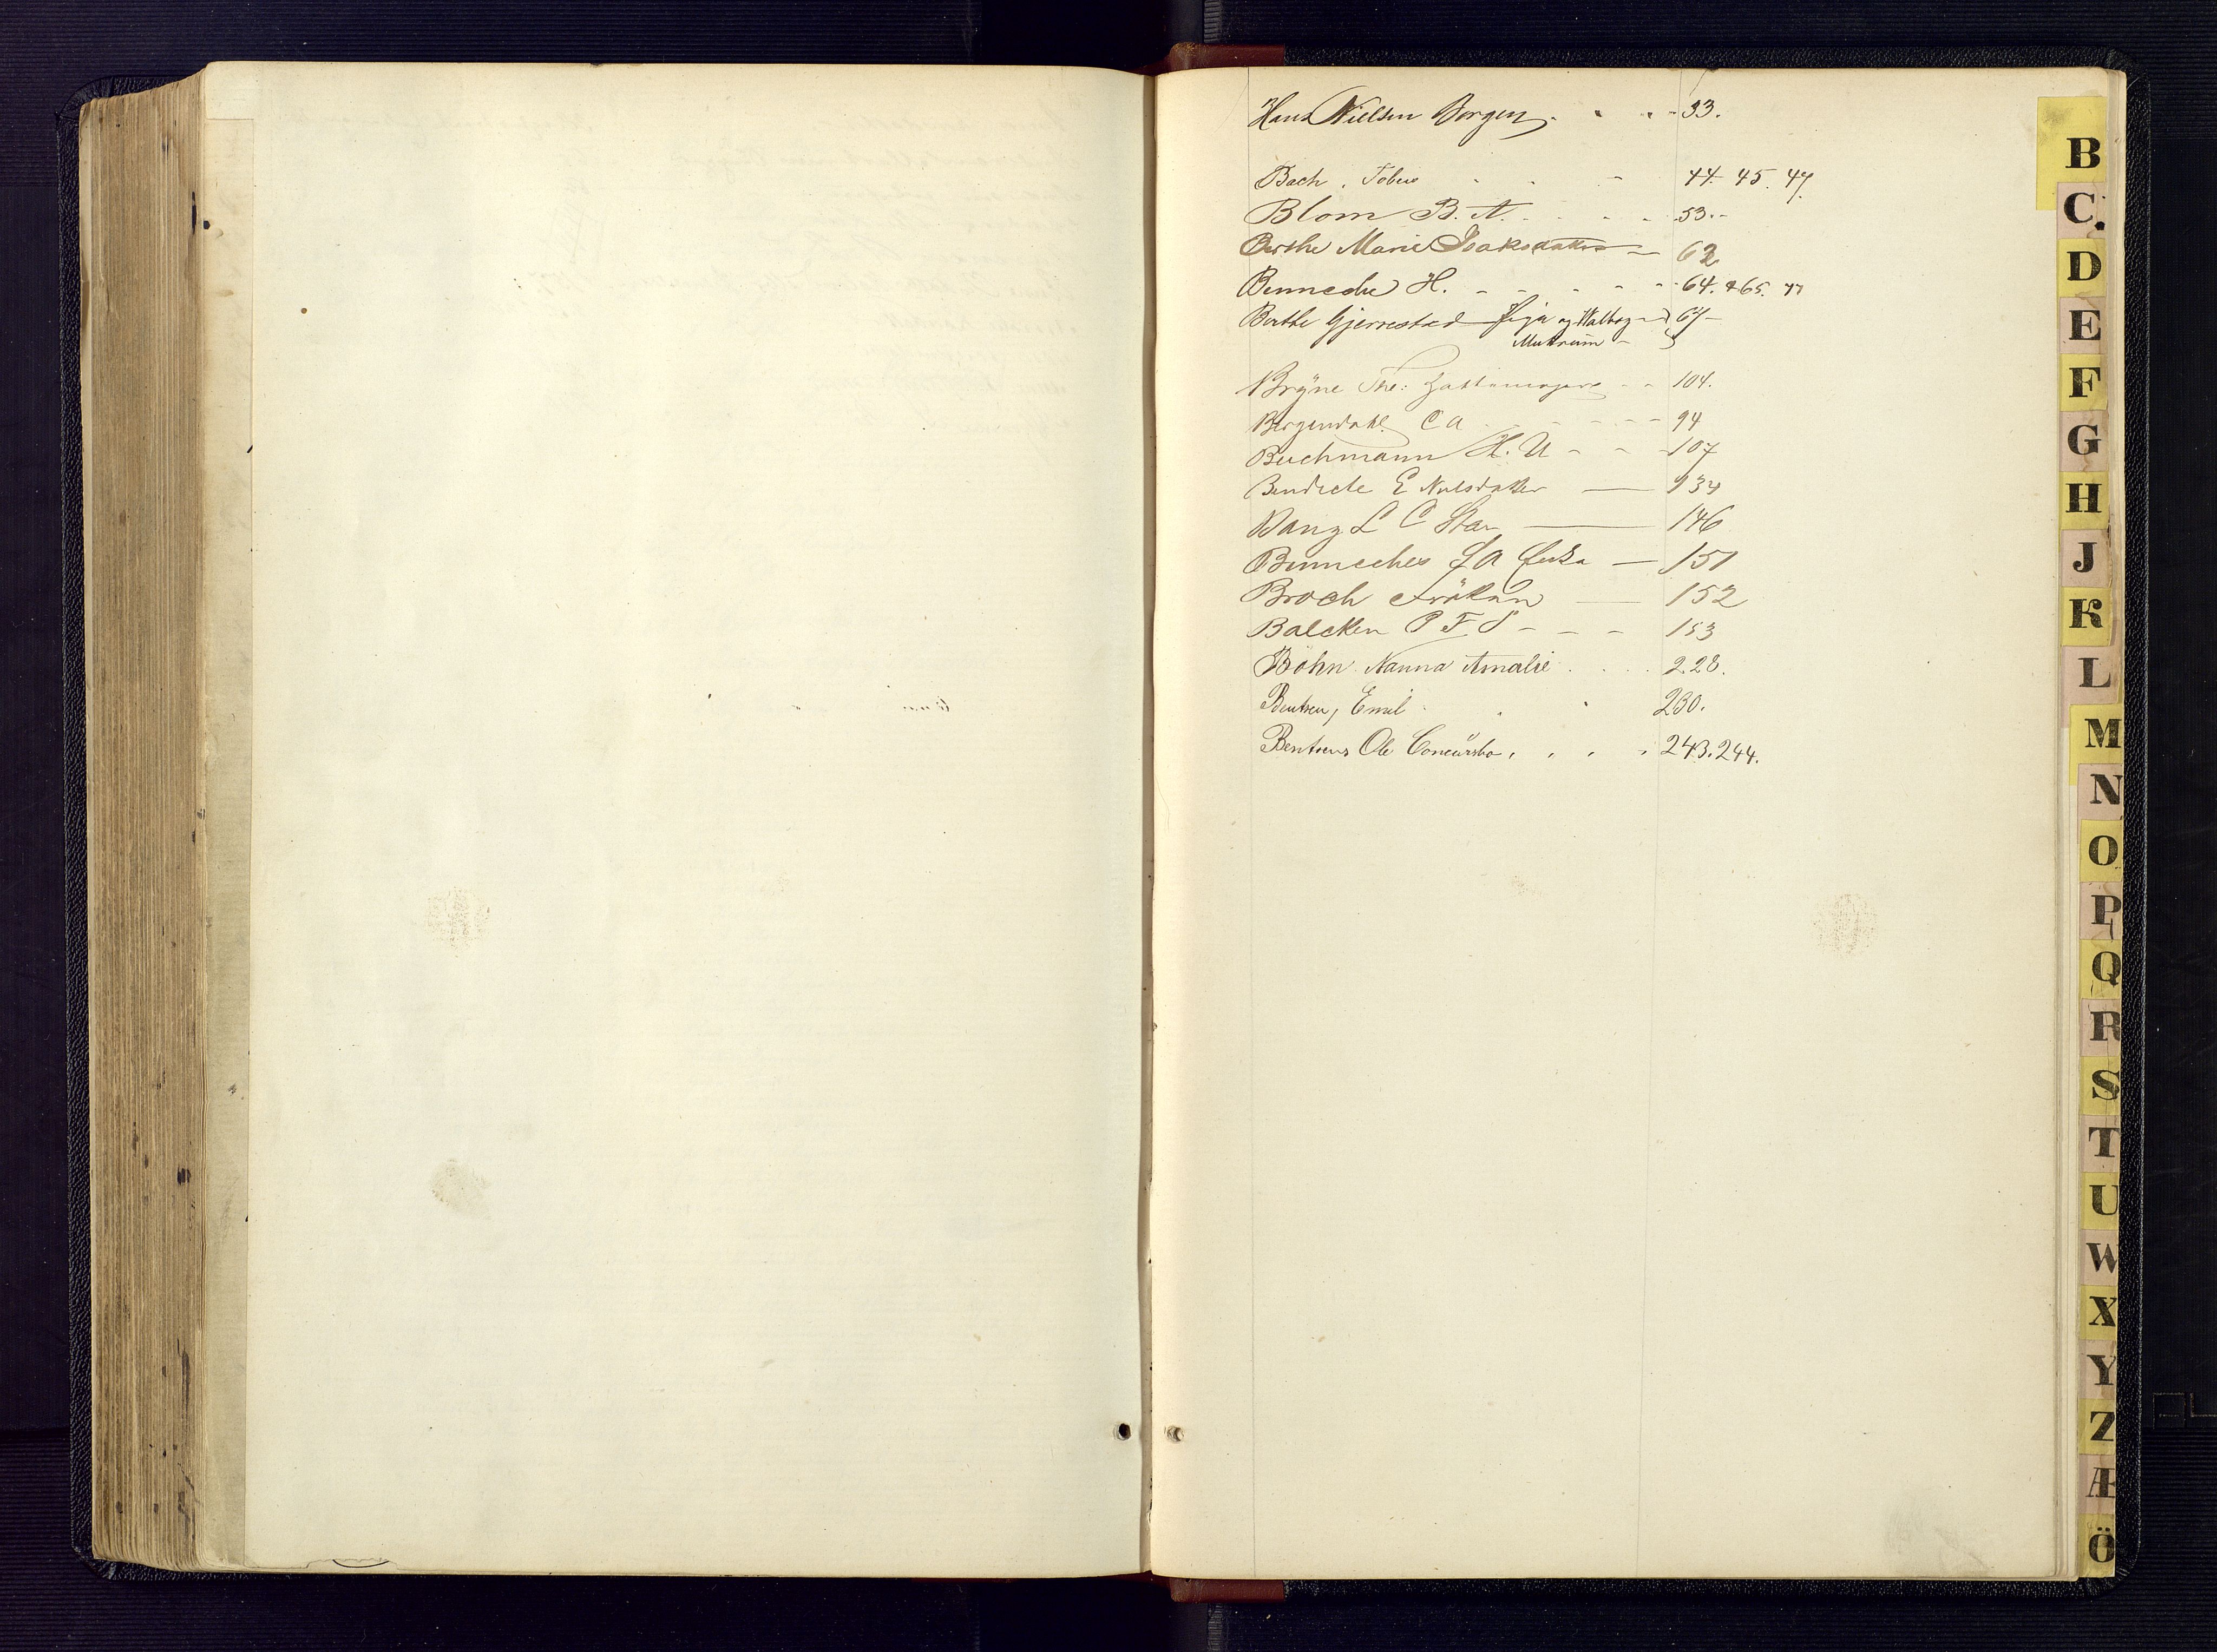 Hans Nielsen Borgen - 33.
Bach, Tobias - 44. 45. 47.
Blom B. A. - 53. -
Berthe Marie Isaksdatter - 62
Benneche H. - 64. & 65. 77
Berthe Gjerrestad og Walborg - 67 -
Bryne The: - 104.
Bergendahl C A - 94
Buchmann H. U - 107
Bendicte E Nilsdatter — 134
Bang L C — 146
Benneches J A Enke — 151
Broch Frøken — 152
Balcken P F S - 153
Bøhn Nanna Amalie . . . . 228.
Bentsen, Emil . . . 230.
Bentsens Ole Concürsbo, , , , 243. 244.
B
C.
D
E
F
G
H
J
K
L
M
N
O
P
Q
R
S
T
U
W
X
Y
Z
Æ
Ö